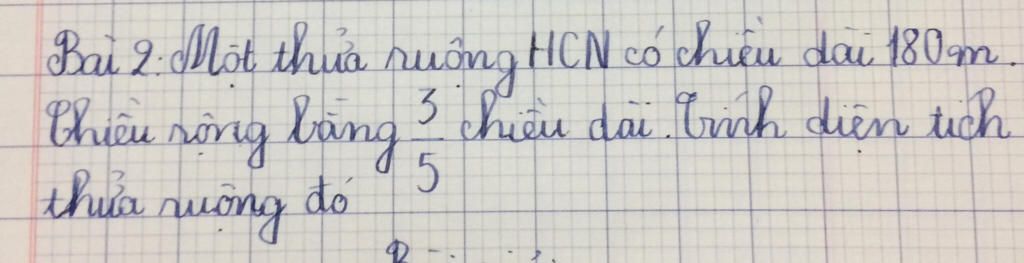 Bài 2: Một thửa ruộng HCN có chiều dài 180m.
Chiều rộng bằng 3/5 chiều dài. Tính diện tích
thửa ruộng đó